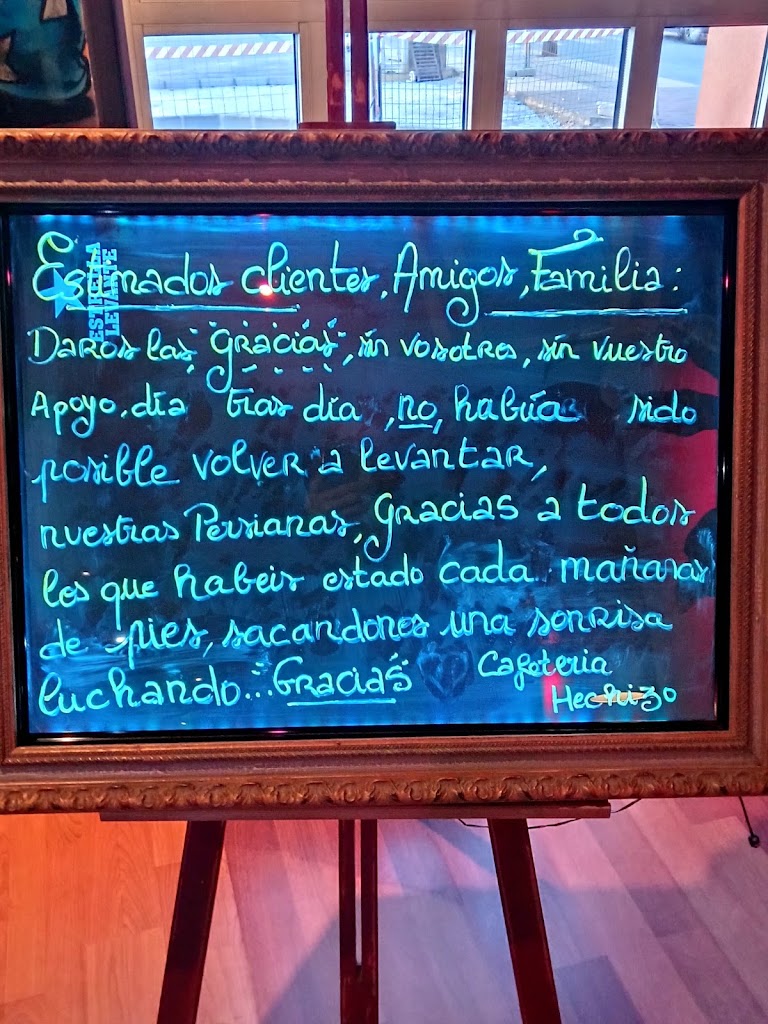 Estimados clientes, Amigos, Familia:
ESTRELLA
LEVANTE
Daros las "gracias", sin vosotros, sin vuestro
Apoyo, día tras día, no, habría sido
posible volver a levantar,
nuestras Persianas, Gracias a todos
los que habeis estado cada mañanas
de pies, sacandonos una sonrisa
luchando... Gracias Cafeteria
Hechizo